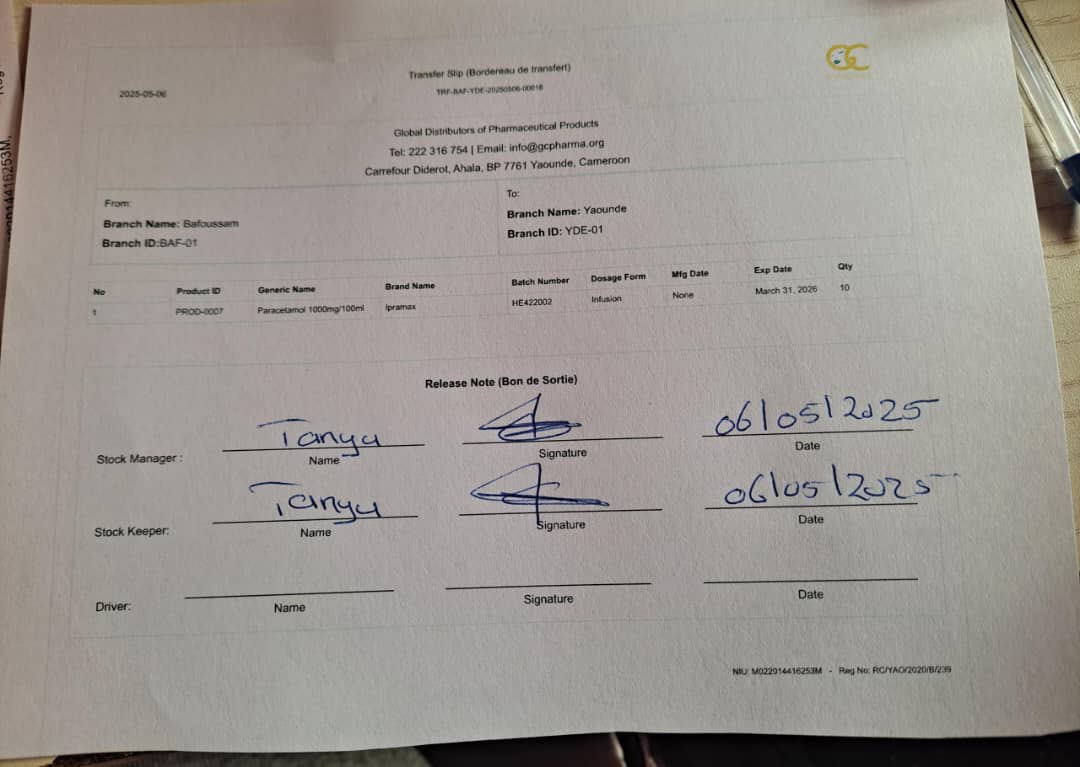 GC
Transfer Slip (Bordereau de transfert)
2025-05-06
TRF-BAF-YDE-20250506-00018
Global Distributors of Pharmaceutical Products
Tel: 222 316 754 | Email: info@gcpharma.org
Carrefour Diderot, Ahala, BP 7761 Yaounde, Cameroon
From:
Branch Name: Bafoussam
Branch ID:BAF-01
To:
Branch Name: Yaounde
Branch ID: YDE-01
No Product ID Generic Name Brand Name Batch Number Dosage Form Mfg Date Exp Date Qty
1 PROD-0007 Paracetamol 1000mg/100ml Ipramax HE422002 Infusion None March 31, 2026 10
Release Note (Bon de Sortie)
Tanyu 06/05/2025
Stock Manager : Name Signature Date
Tanyu 06/05/2025
Stock Keeper: Name Signature Date
Driver: Name Signature Date
NIU: M022014416253M - Reg No: RC/YAO/2020/B/239